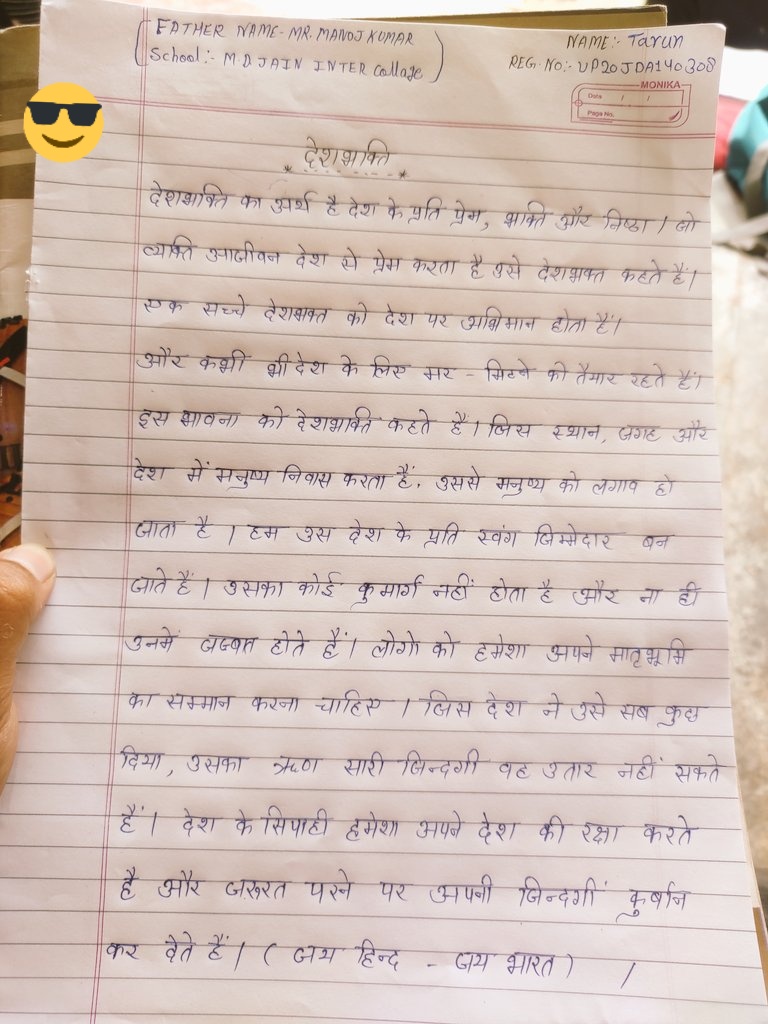 FATHER NAME- MR. MANOJ KUMAR
School:- M.D JAIN INTER College
NAME:- Tarun
REG. NO:- UP20JDA140308
MONIKA
Date / /
Page No.
देशभक्ति
देशभक्ति का अर्थ है देश के प्रति प्रेम, भक्ति और निष्ठा। जो
व्यक्ति आजीवन देश से प्रेम करता है उसे देशभक्त कहते हैं।
एक सच्चे देशभक्त को देश पर अभिमान होता हैं।
और कभी भी देश के लिए मर - मिटने को तैयार रहते हैं।
इस भावना को देशभक्ति कहते हैं। जिस स्थान, जगह और
देश में मनुष्य निवास करता हैं, उससे मनुष्य को लगाव हो
जाता है। हम उस देश के प्रति स्वंग जिम्मेदार बन
जाते हैं। उसका कोई कुमार्ग नहीं होता है और ना ही
उनमें जज्बात होते हैं। लोगो को हमेशा अपने मातृभूमि
का सम्मान करना चाहिए। जिस देश ने उसे सब कुछ
दिया, उसका ऋण सारी जिन्दगी वह उतार नहीं सकते
हैं। देश के सिपाही हमेशा अपने देश की रक्षा करते
है और जरूरत परने पर अपनी जिन्दगीं कुर्बान
कर देते हैं। ( जय हिन्द - जय भारत ) ।